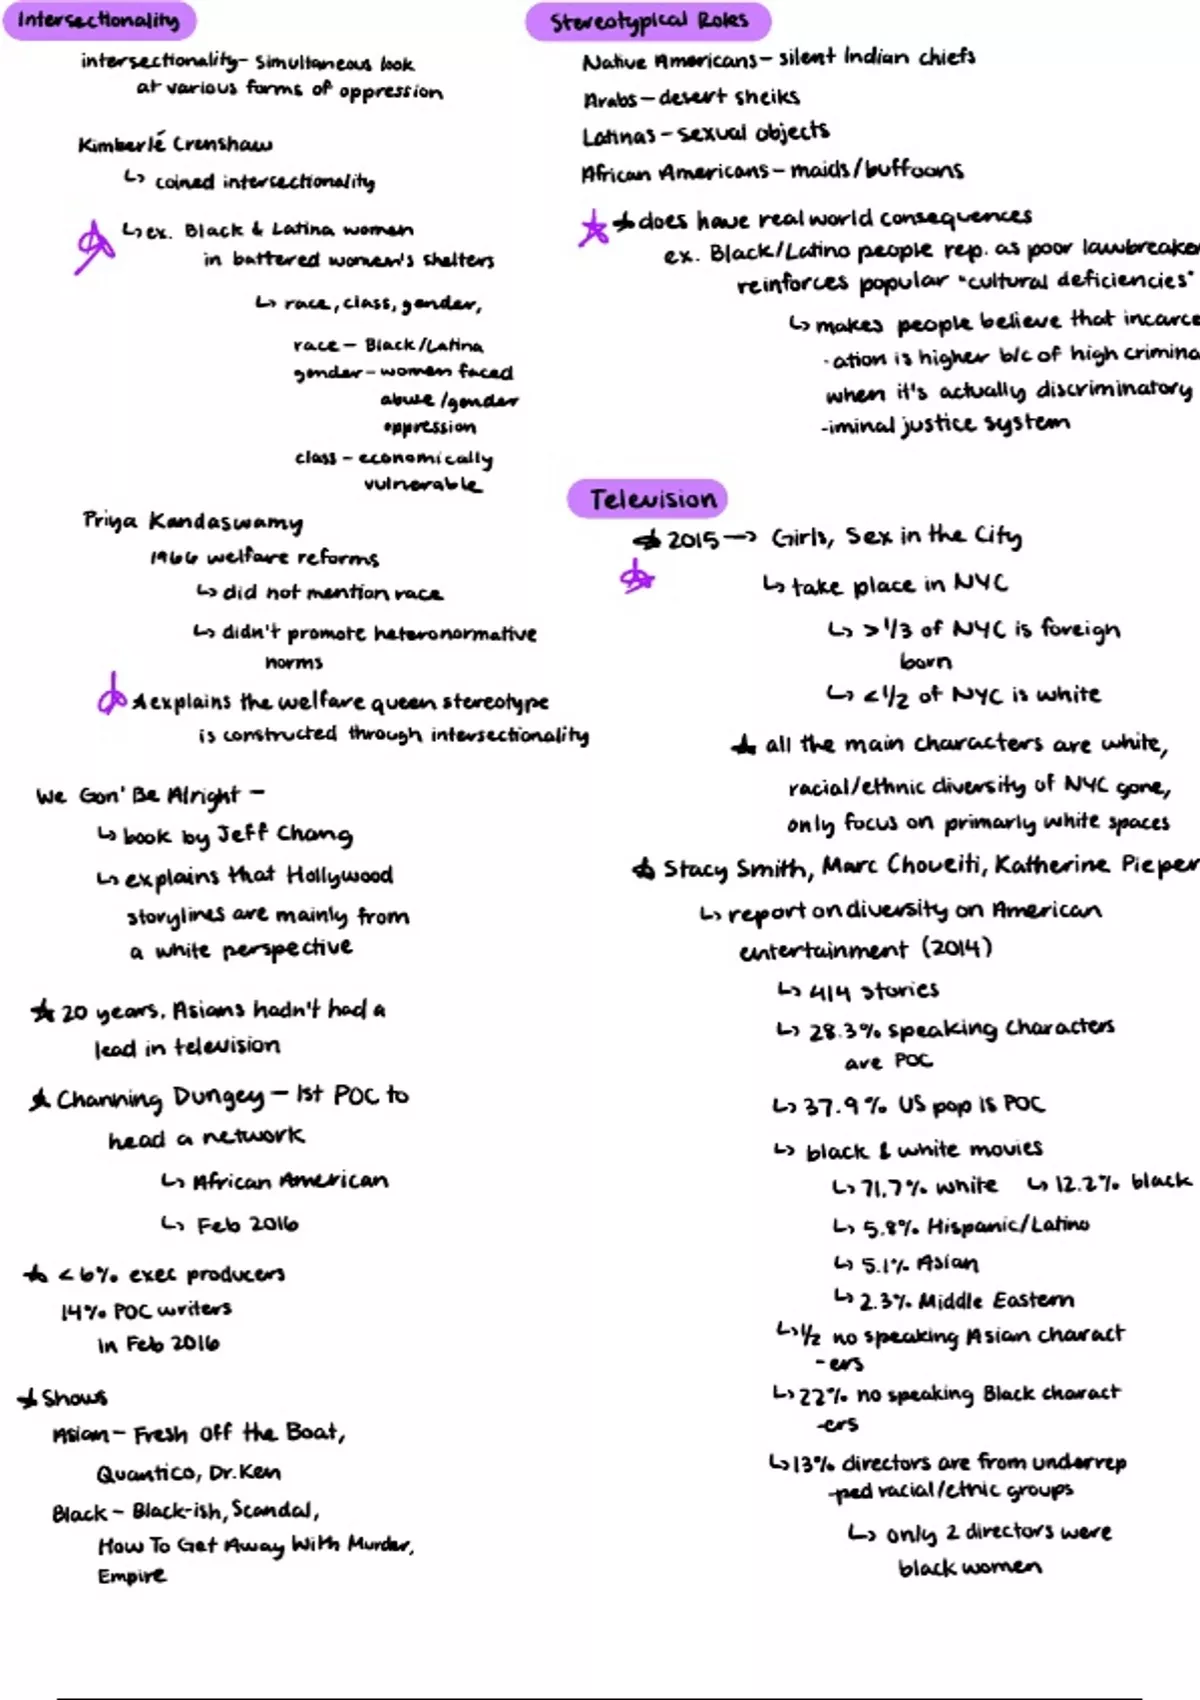 Intersectionality
intersectionality- simultaneous look
at various forms of oppression
Kimberlé Crenshaw
↳ coined intersectionality
↳ ex. Black & Latina women
in battered women's shelters
↳ race, class, gender,
race - Black/Latina
gender - women faced
abuse/gender
oppression
class - economically
vulnerable
Priya Kandaswamy
1966 welfare reforms
↳ did not mention race
↳ didn't promote heteronormative
norms
★ explains the welfare queen stereotype
is constructed through intersectionality
We Gon' Be Alright -
↳ book by Jeff Chang
↳ explains that Hollywood
storylines are mainly from
a white perspective
★ 20 years. Asians hadn't had a
lead in television
★ Channing Dungey - 1st POC to
head a network
↳ African American
↳ Feb 2016
★ <6% exec producers
14% POC writers
in Feb 2016
★ Shows
Asian - Fresh Off the Boat,
Quantico, Dr. Ken
Black - Black-ish, Scandal,
How To Get Away With Murder,
Empire
Stereotypical Roles
Native Americans - silent Indian chiefs
Arabs - desert sheiks
Latinas - sexual objects
African Americans - maids/buffoons
★ does have real world consequences
ex. Black/Latino people rep. as poor lawbreaker
reinforces popular "cultural deficiencies"
↳ makes people believe that incarce
-ation is higher b/c of high crimina
when it's actually discriminatory
-iminal justice system
Television
★ 2015 → Girls, Sex in the City
↳ take place in NYC
↳ >1/3 of NYC is foreign
born
↳ <1/2 of NYC is white
★ all the main characters are white,
racial/ethnic diversity of NYC gone,
only focus on primarly white spaces
★ Stacy Smith, Marc Choueiti, Katherine Pieper
↳ report on diversity on American
entertainment (2014)
↳ 414 stories
↳ 28.3% speaking characters
are POC
↳ 37.9% US pop is POC
↳ black & white movies
↳ 71.7% white ↳ 12.2% black
↳ 5.8% Hispanic/Latino
↳ 5.1% Asian
↳ 2.3% Middle Eastern
↳ 1/2 no speaking Asian charact
-ers
↳ 22% no speaking Black charact
-ers
↳ 13% directors are from underrep
-ped racial/ethic groups
↳ only 2 directors were
black women